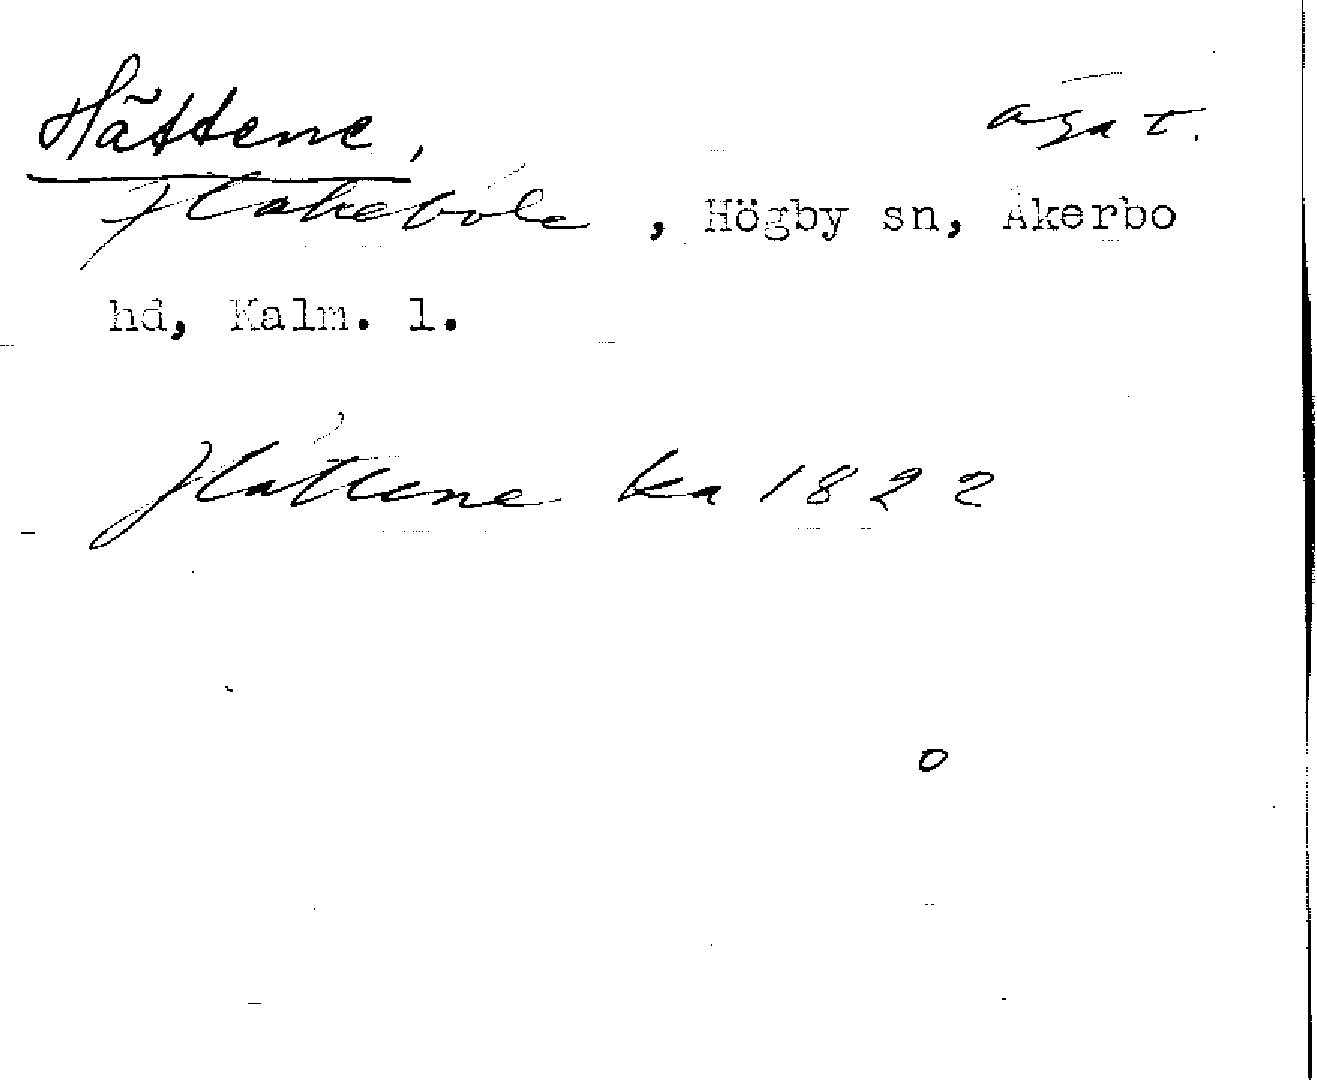 Hättene,
ägat.
Flakeböle, Högby sn, Åkerbo
hd, Kalm. l.
Hättene ka 1822
o